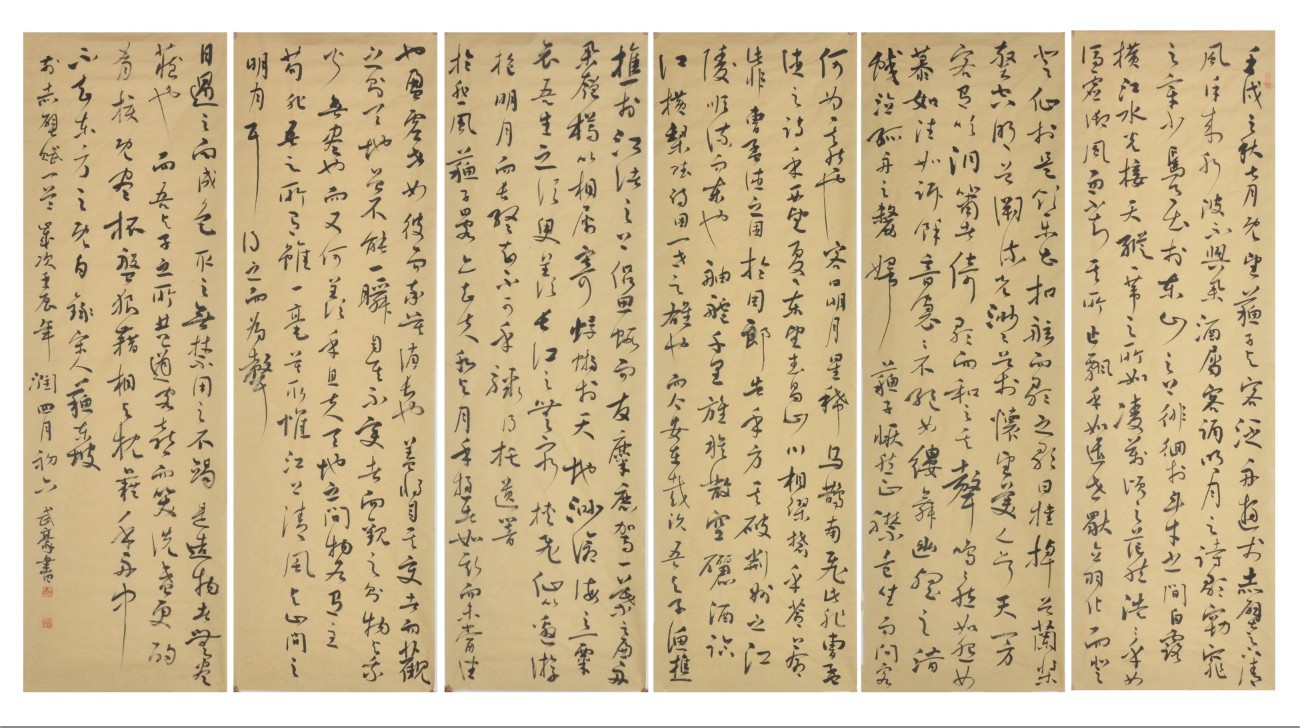 壬戌之秋七月既望蘇子与客泛舟遊於赤壁之下清
風徐来水波不興舉酒屬客誦明月之詩歌窈窕
之章少焉月出於東山之上徘徊於斗牛之間白露
横江水光接天縱一葦之所如凌萬頃之茫然浩浩乎如
馮虛御風而不知其所止飄飄乎如遺世獨立羽化而登
登仙於是飲酒樂甚扣舷而歌之歌曰桂棹兮蘭槳
擊空明兮溯流光渺渺兮於懷望美人兮天一方
客有吹洞簫者倚歌而和之其聲嗚嗚然如怨如
慕如泣如訴餘音裊裊不絕如縷舞幽壑之潛
蛟泣孤舟之嫠婦蘇子愀然正襟危坐而問客
何為其然也客曰明月星稀烏鵲南飛此非曹孟
德之詩乎西望夏口東望武昌山川相繆鬱乎蒼蒼
此非曹孟德之困於周郎者乎方其破荊州之江
陵順流而東也舳艫千里旌旗蔽空釃酒臨
江橫槊賦詩固一世之雄也而今安在哉況吾与子漁樵
樵於江渚之上侶魚蝦而友麋鹿駕一葉之扁舟
舉匏樽以相屬寄蜉蝣於天地渺滄海之一粟
哀吾生之須臾羨長江之無窮挾飛仙以遨遊
抱明月而長終知不可乎驟得托遺響
於悲風蘇子曰客亦知夫水与月乎逝者如斯而未嘗往
也盈虛者如彼而卒莫消長也蓋將自其變者而觀
之則天地曾不能一瞬自其不變者而觀之則物与我
皆無盡也而又何羨乎且夫天地之間物各有主
苟非吾之所有雖一毫莫取惟江上清風与山間之
明月耳得之而為聲
目遇之而成色取之無禁用之不竭是造物者無盡
藏也而吾与子之所共適客喜而笑洗盞更酌
肴核既盡杯盤狼藉相与枕藉乎舟中
不知東方之既白錄宋人蘇東坡
前赤壁賦一首歲次壬辰年潤四月初六武豪書